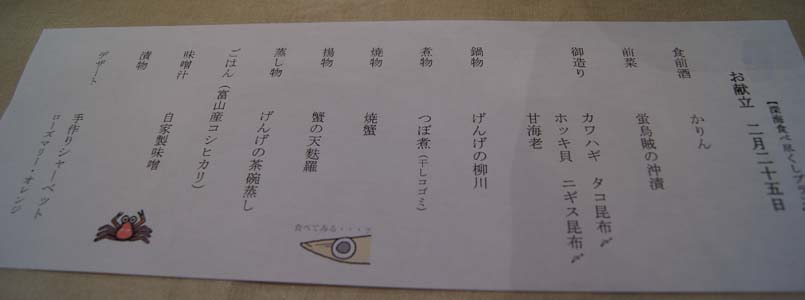 【深海食べ尽くしプラン
お献立　二月二十五日
食前酒　かりん
前菜　蛍烏賊の沖漬
御造り　カワハギ　タコ昆布〆
ホッキ貝　ニギス昆布〆
甘海老
鍋物　げんげの柳川
煮物　つぼ煮（干しコゴミ）
焼物　焼蟹
揚物　蟹の天麩羅
蒸し物　げんげの茶碗蒸し
ごはん（富山産コシヒカリ）
味噌汁　自家製味噌
漬物
デザート　手作りシャーベット
ローズマリー・オレンジ
食べてみる・・・？